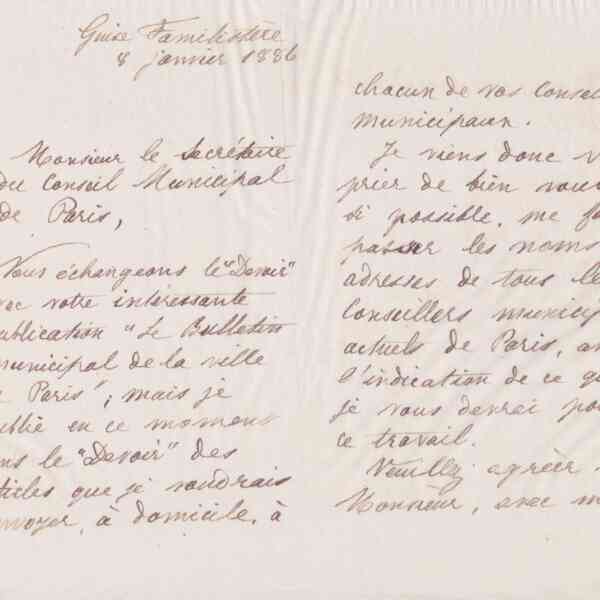 Guise Familistère
8 janvier 1886
Monsieur le Secrétaire
du Conseil Municipal
de Paris,
Nous échangeons le "Devoir"
avec votre intéressante
publication "Le Bulletin
municipal de la ville
de Paris"; mais je
publie en ce moment
dans le "Devoir" des
articles que je voudrais
envoyer, à domicile, à
chacun de vos Conseil
municipaux.
Je viens donc v
prier de bien vou
si possible, me fa
passer les noms
adresses de tous le
Conseillers municip
actuels de Paris, a
l'indication de ce q
je vous devrai po
ce travail.
Veuillez agréer
Monsieur, avec m